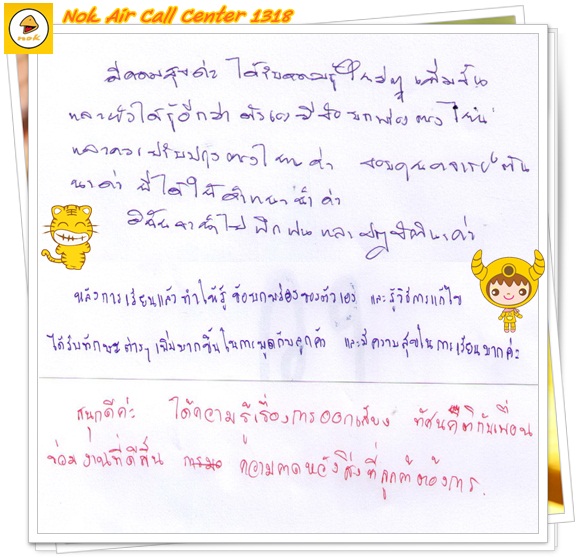 Nok Air Call Center 1318
nok
มีความสุขค่ะ ได้รับความรู้ใหม่ๆ เพิ่มขึ้น
และยังได้รู้อีกว่า ตัวเองมีข้อบกพร่องตรงไหน
และควรปรับปรุงตรงไหน ค่ะ ขอบคุณอาจารย์
นะค่ะ ที่ได้ให้คำแนะนำ ค่ะ
ดิฉันจะนำไปฝึกฝน และปฏิบัตินะค่ะ
หลังการเรียนแล้วทำให้รู้ ข้อบกพร่องของตัวเอง และรู้วิธีการแก้ไข
ได้รับทักษะต่างๆ เพิ่มมากขึ้นในการพูดกับลูกค้า และมีความสุขในการเรียนมากค่ะ
สนุกดีค่ะ ได้ความรู้เรื่องการออกเสียง ทัศนคติกับเพื่อน
ร่วมงานที่ดีขึ้น ความคาดหวังสิ่งที่ลูกค้าต้องการ.